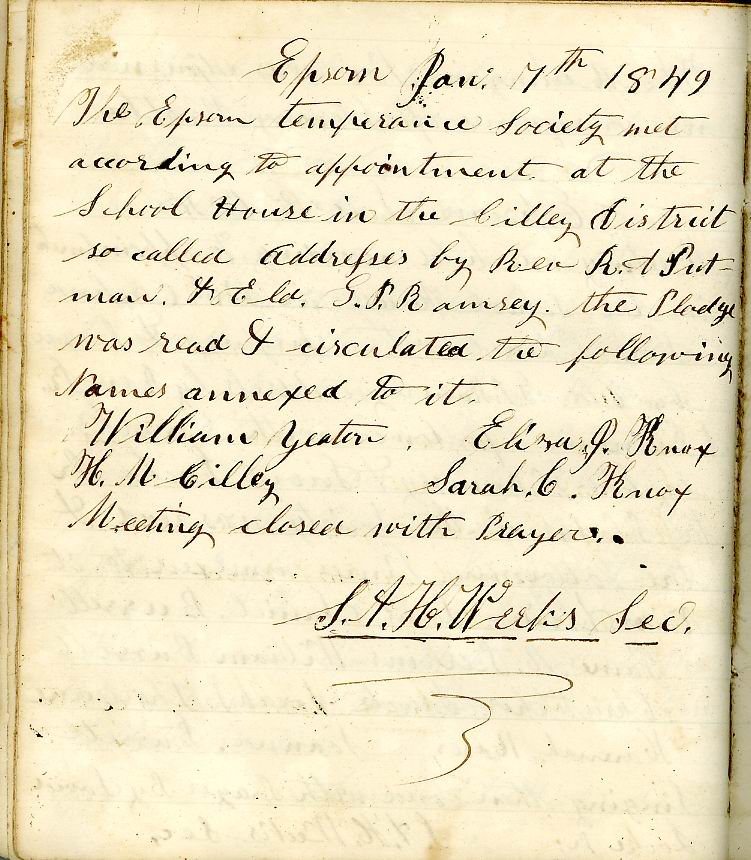 Epsom Jan. 7th 1849
The Epsom temperance Society met
according to appointment at the
School House in the Cilley District
so called Addresses by Rev R. A Put-
man. & Eld. S.P. Ramsey. the Pledge
was read & circulated the following
Names annexed to it.
William Yeaton. Eliza J. Knox
H. M Cilley Sarah. C. Knox
Meeting closed with Prayer.
S. A. H. Weeks Sec.